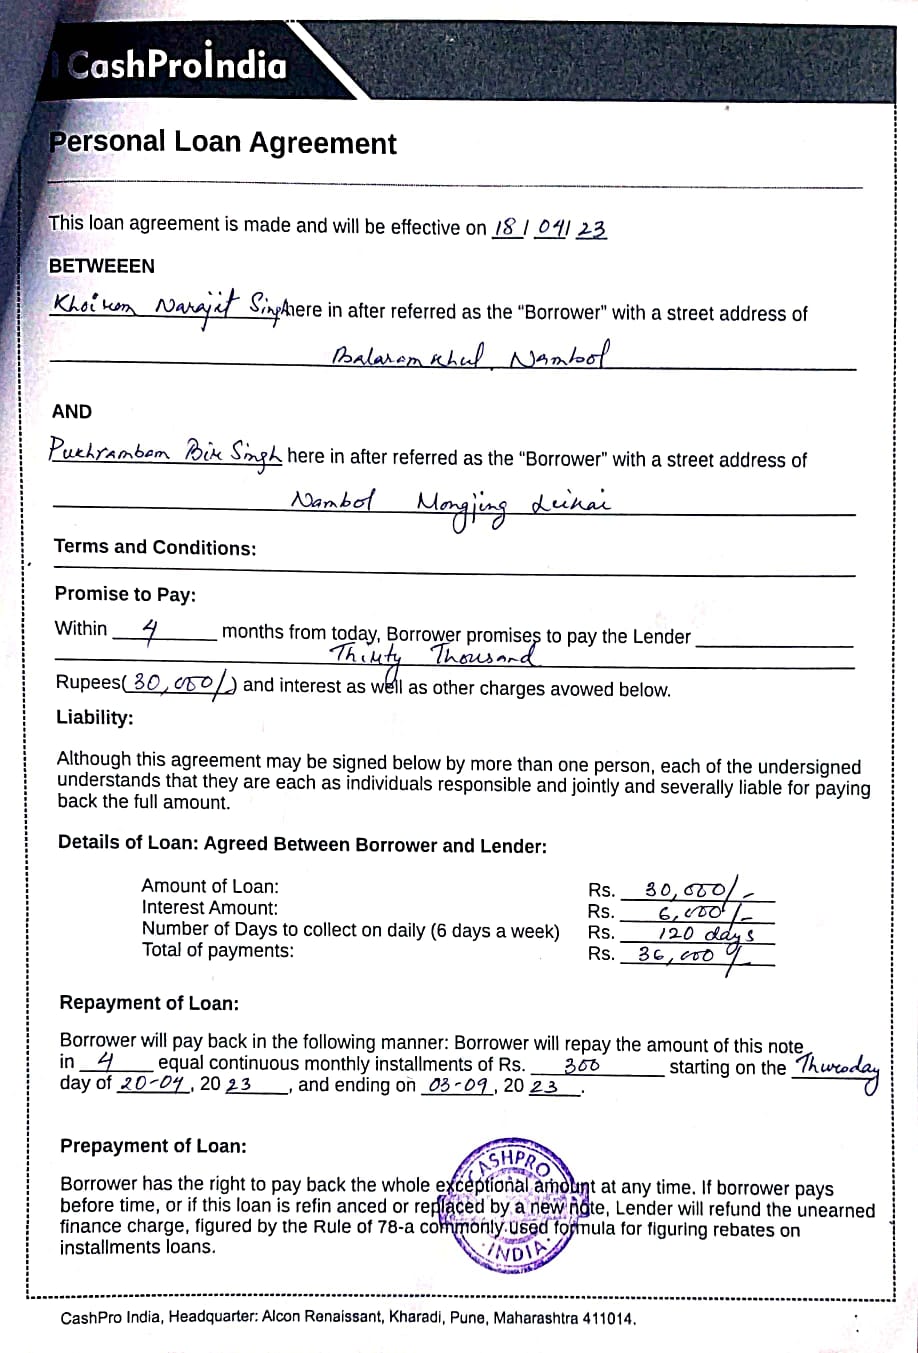 CashProIndia
Personal Loan Agreement
This loan agreement is made and will be effective on 18 / 04 / 23
BETWEEEN
Khoirom Narajit Singh here in after referred as the “Borrower” with a street address of
Balaram Khul, Nambol
AND
Pukhrambam Bir Singh here in after referred as the “Borrower” with a street address of
Nambol Mongjing Leikai
Terms and Conditions:
Promise to Pay:
Within 4 months from today, Borrower promises to pay the Lender
Thirty Thousand
Rupees( 30,000/ ) and interest as well as other charges avowed below.
Liability:
Although this agreement may be signed below by more than one person, each of the undersigned
understands that they are each as individuals responsible and jointly and severally liable for paying
back the full amount.
Details of Loan: Agreed Between Borrower and Lender:
Amount of Loan: Rs. 30,000/-
Interest Amount: Rs. 6,000/-
Number of Days to collect on daily (6 days a week) Rs. 120 days
Total of payments: Rs. 36,000/-
Repayment of Loan:
Borrower will pay back in the following manner: Borrower will repay the amount of this note
in 4 equal continuous monthly installments of Rs. 300 starting on the Thursday
day of 20-04, 20 23, and ending on 03-09, 20 23.
Prepayment of Loan:
Borrower has the right to pay back the whole exceptional amount at any time. If borrower pays
before time, or if this loan is refin anced or replaced by a new note, Lender will refund the unearned
finance charge, figured by the Rule of 78-a commonly used formula for figuring rebates on
installments loans.
CASHPRO
INDIA
CashPro India, Headquarter: Alcon Renaissant, Kharadi, Pune, Maharashtra 411014.